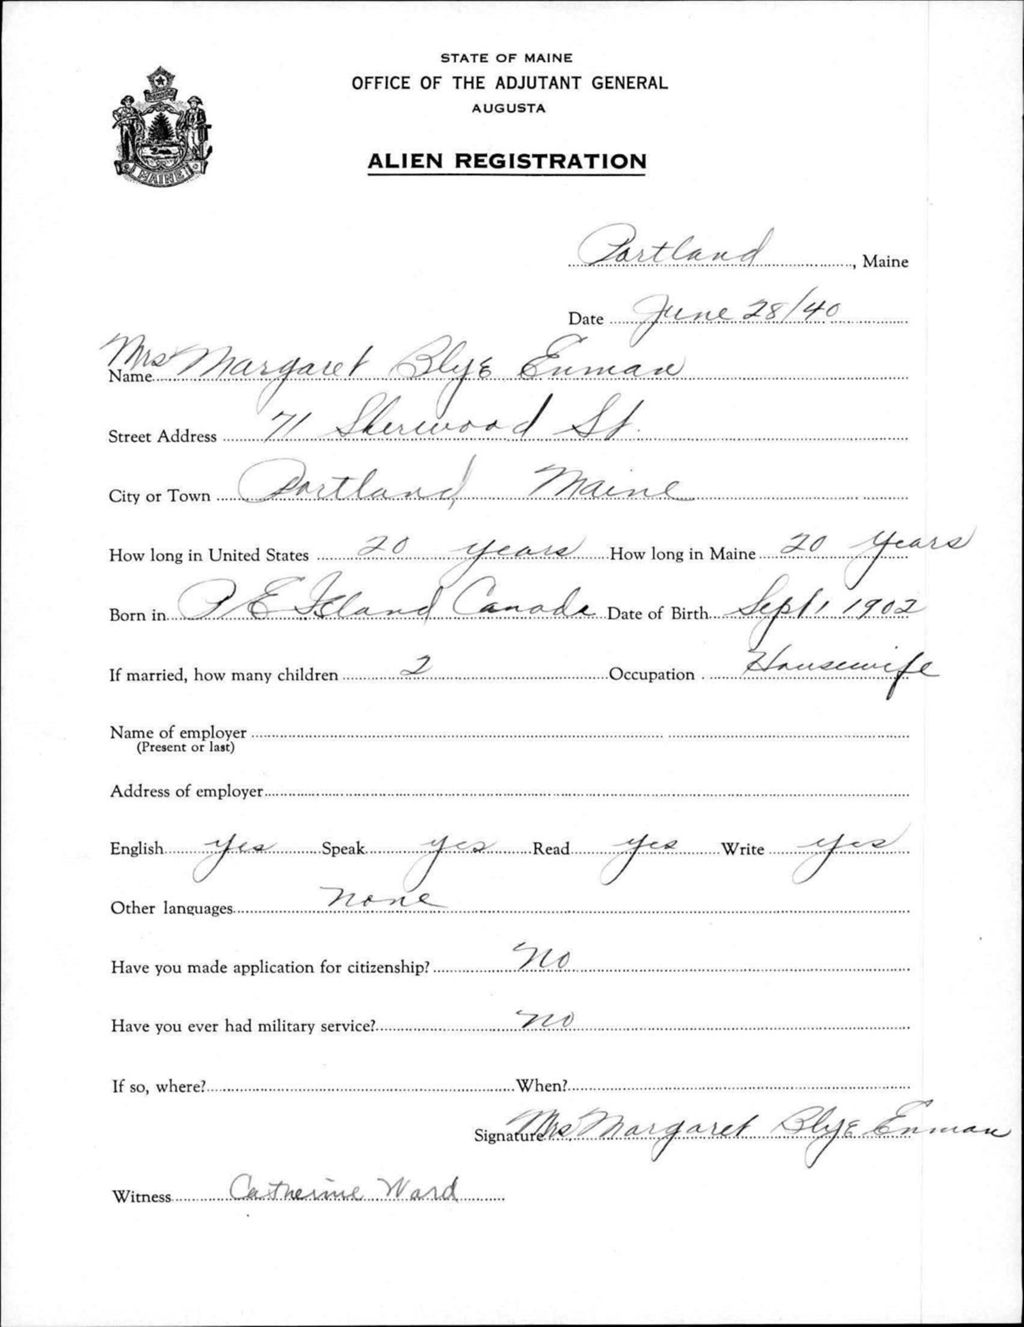 STATE OF MAINE
OFFICE OF THE ADJUTANT GENERAL
AUGUSTA
ALIEN REGISTRATION
MAINE
Portland, Maine
Date June 28/40
Name Mrs Margaret Blye Enman
Street Address 71 Sherwood St.
City or Town Portland, Maine
How long in United States 20 years How long in Maine 20 years
Born in P E Island Canada Date of Birth Sept 1, 1902
If married, how many children 2 Occupation Housewife
Name of employer
(Present or last)
Address of employer
English yes Speak yes Read yes Write yes
Other languages none
Have you made application for citizenship? No
Have you ever had military service? no
If so, where? When?
Signature Mrs. Margaret Blye Enman
Witness Catherine Ward